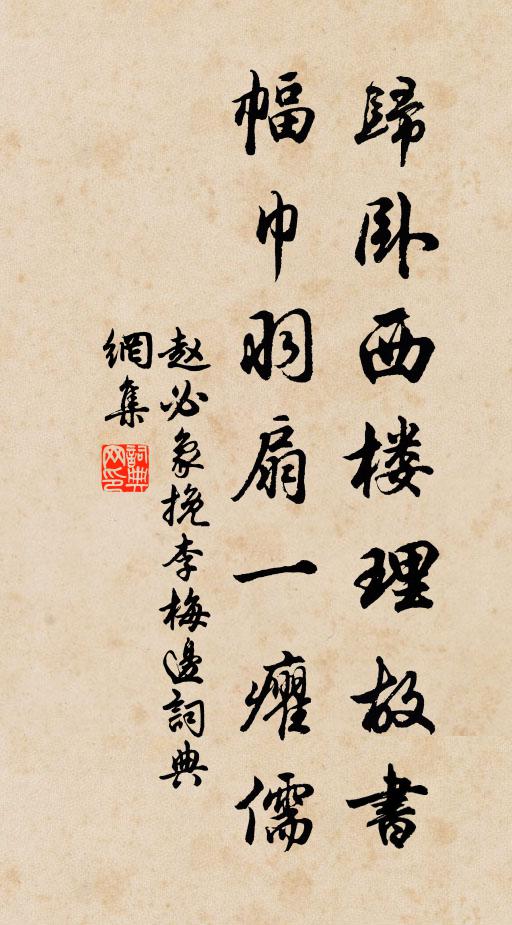 歸卧西楼理故書
幅巾羽扇一癯儒
赵必象挽李梅邊詞典
網集
詞典
网印